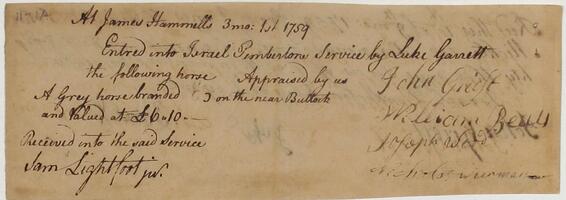 At James Hammells 3 mo: 1st 1759
Entred into Israel Pembertons Service by Luke Garrett
the following horse Appraised by us
A Grey horse branded Ɔ on the near Buttock
and Valued at £6-10-
John Griest
William Beals
Joseph
Received into the said Service
Sam Lightfoot jur.